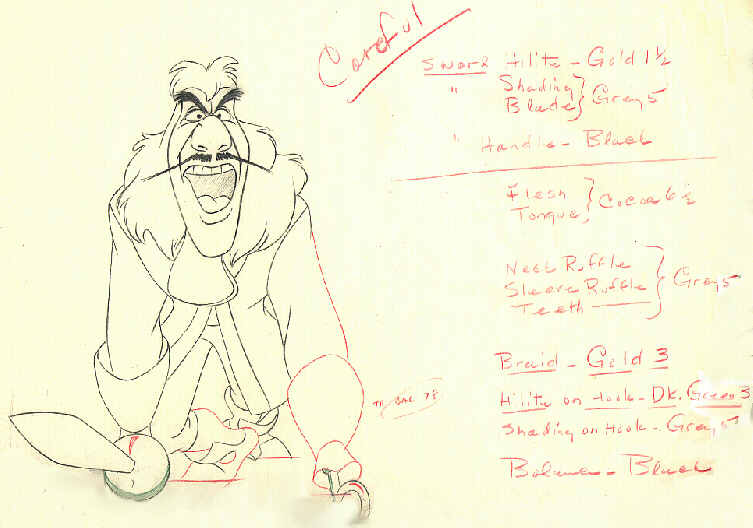 Careful
Sword Hilite - Gold 1½
" Shading } Gray 5
Blade
" Handle - Black
Flesh } Cocoa 6½
Tongue
Neck Ruffle
Sleeve Ruffle } Gray 5
Teeth
Braid - Gold 3
Hilite on Hook - DK. Green 3
Shading on Hook - Gray 5
Balance - Black